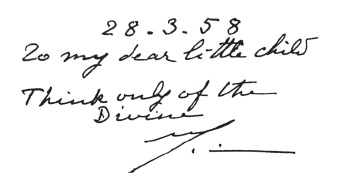 28.3.58
To my dear little child
Think only of the
Divine